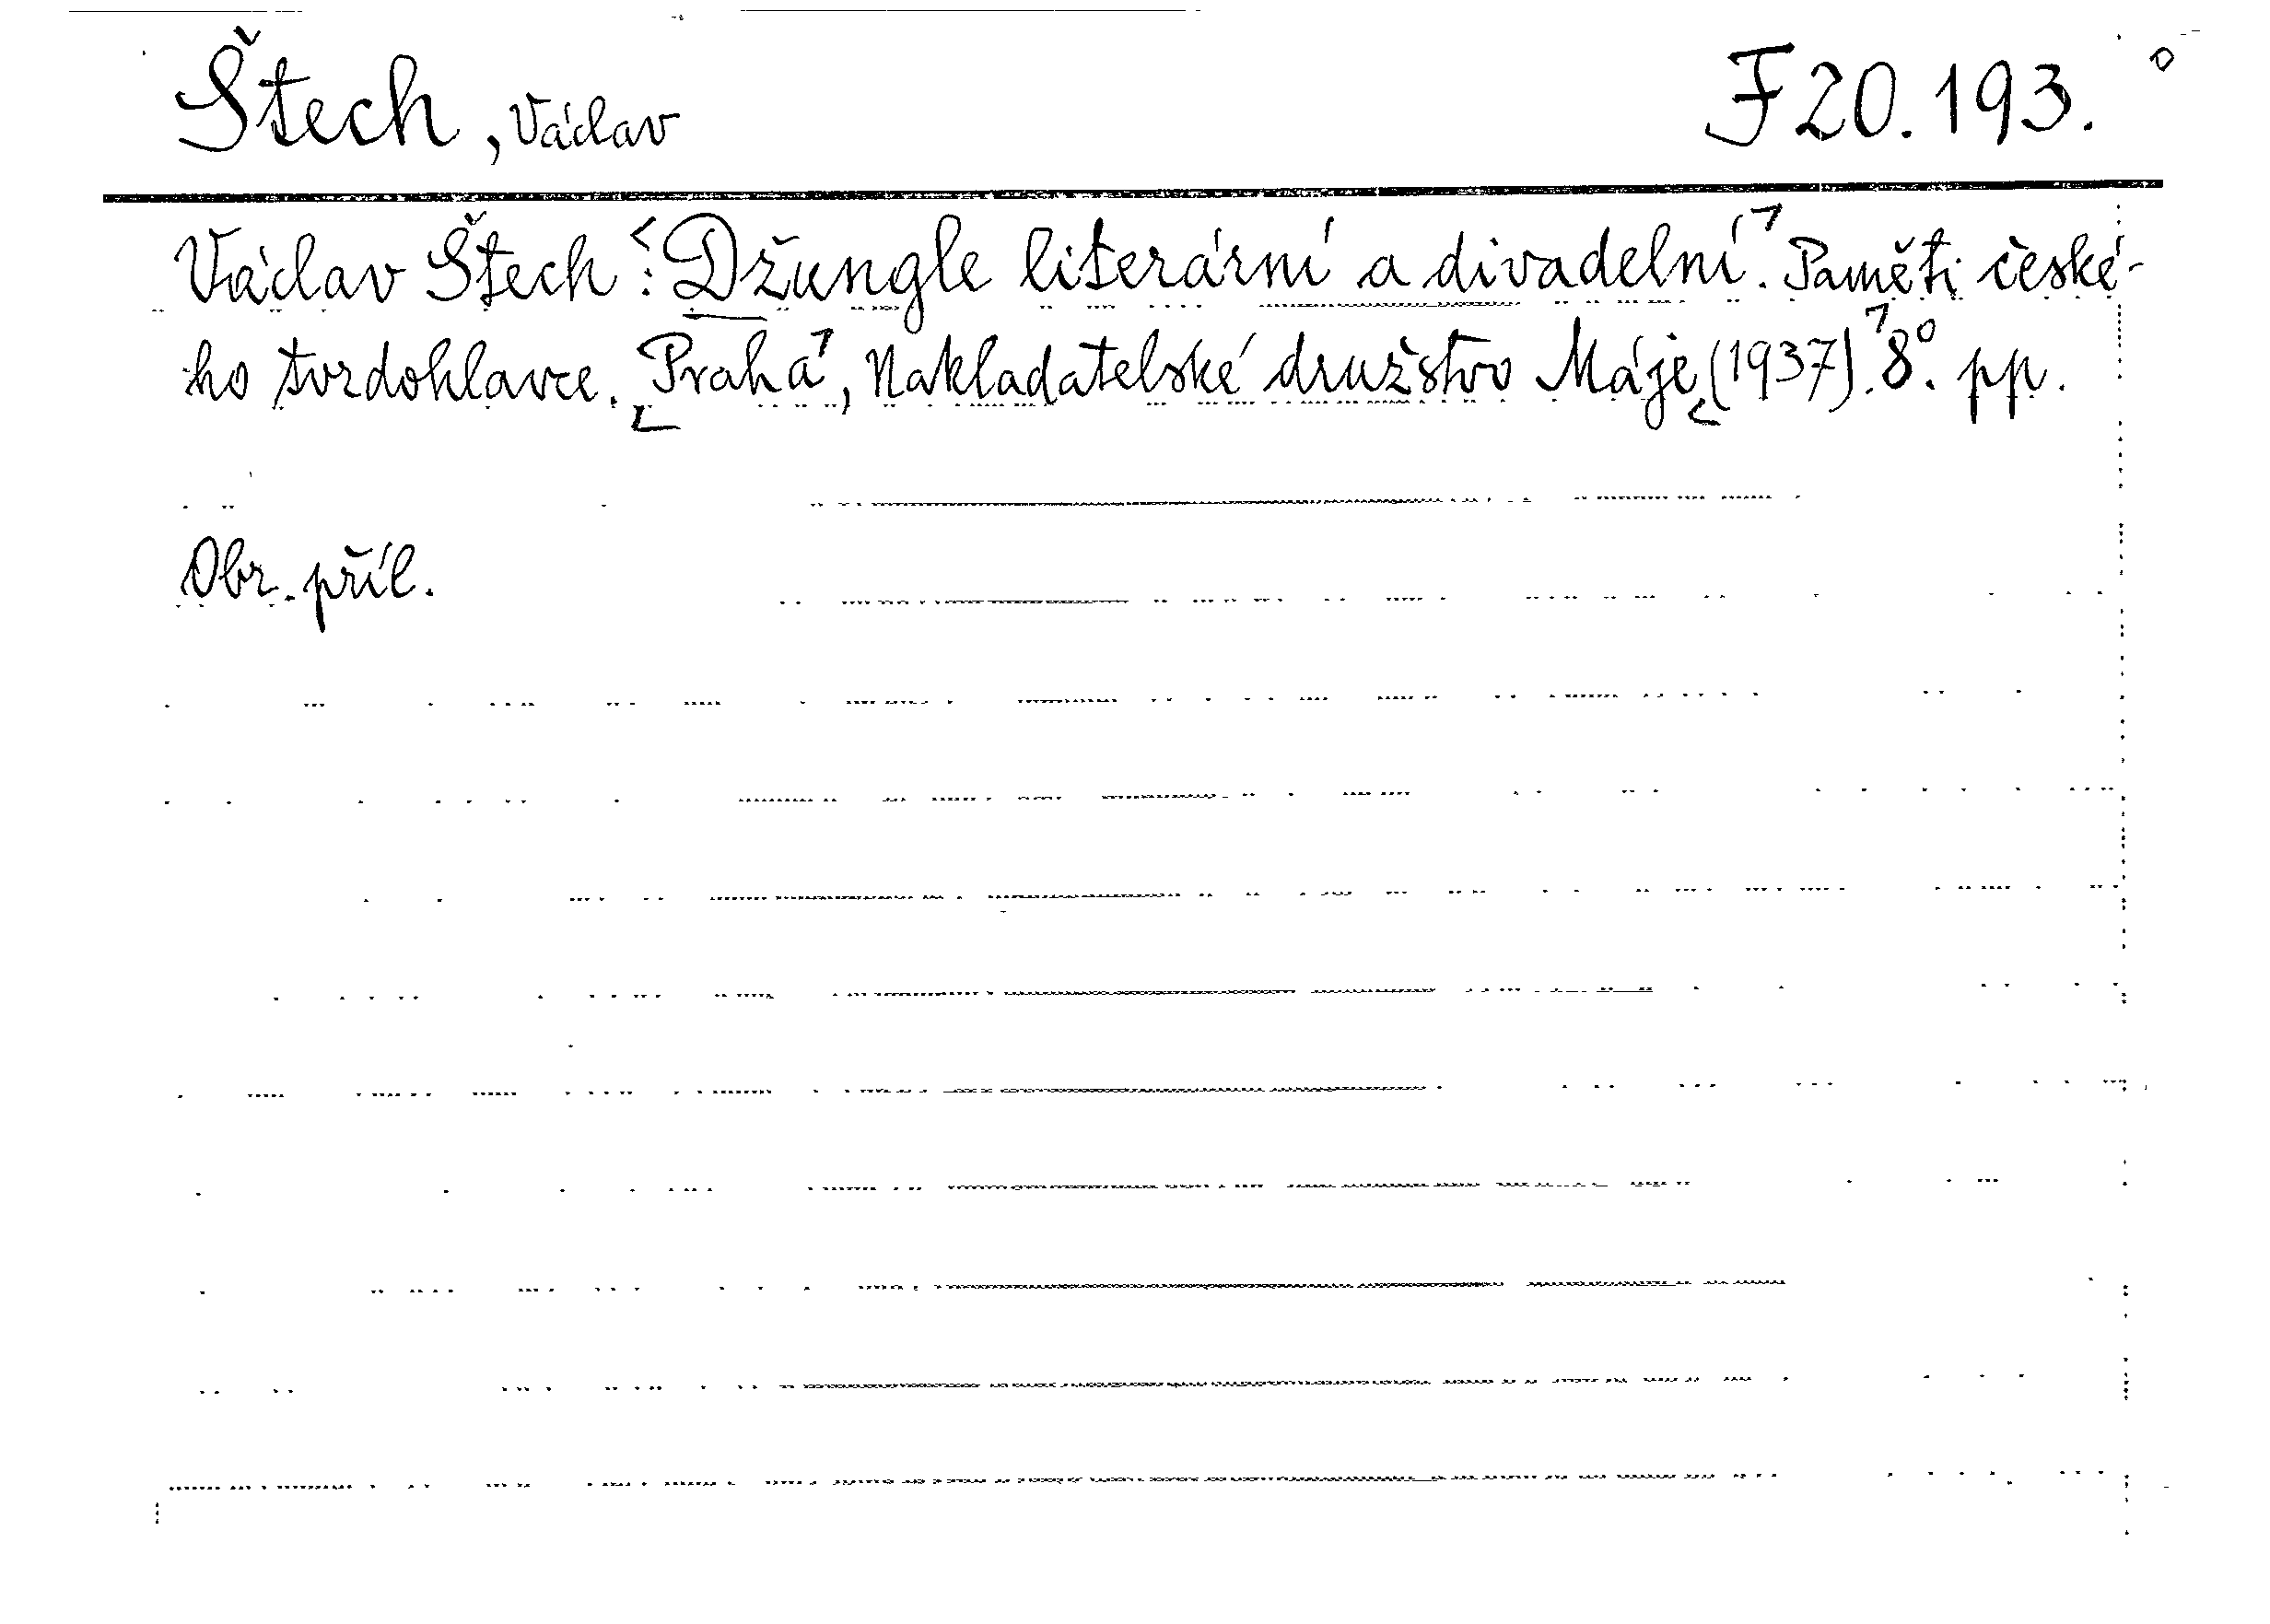 Štech, Václav F 20.193.
Václav Štech: Džungle literární a divadelní. Paměti české-
ho tvrdohlavce. Praha, Nakladatelské družstvo Máje (1937). 8°. pp.
Obr. příl.